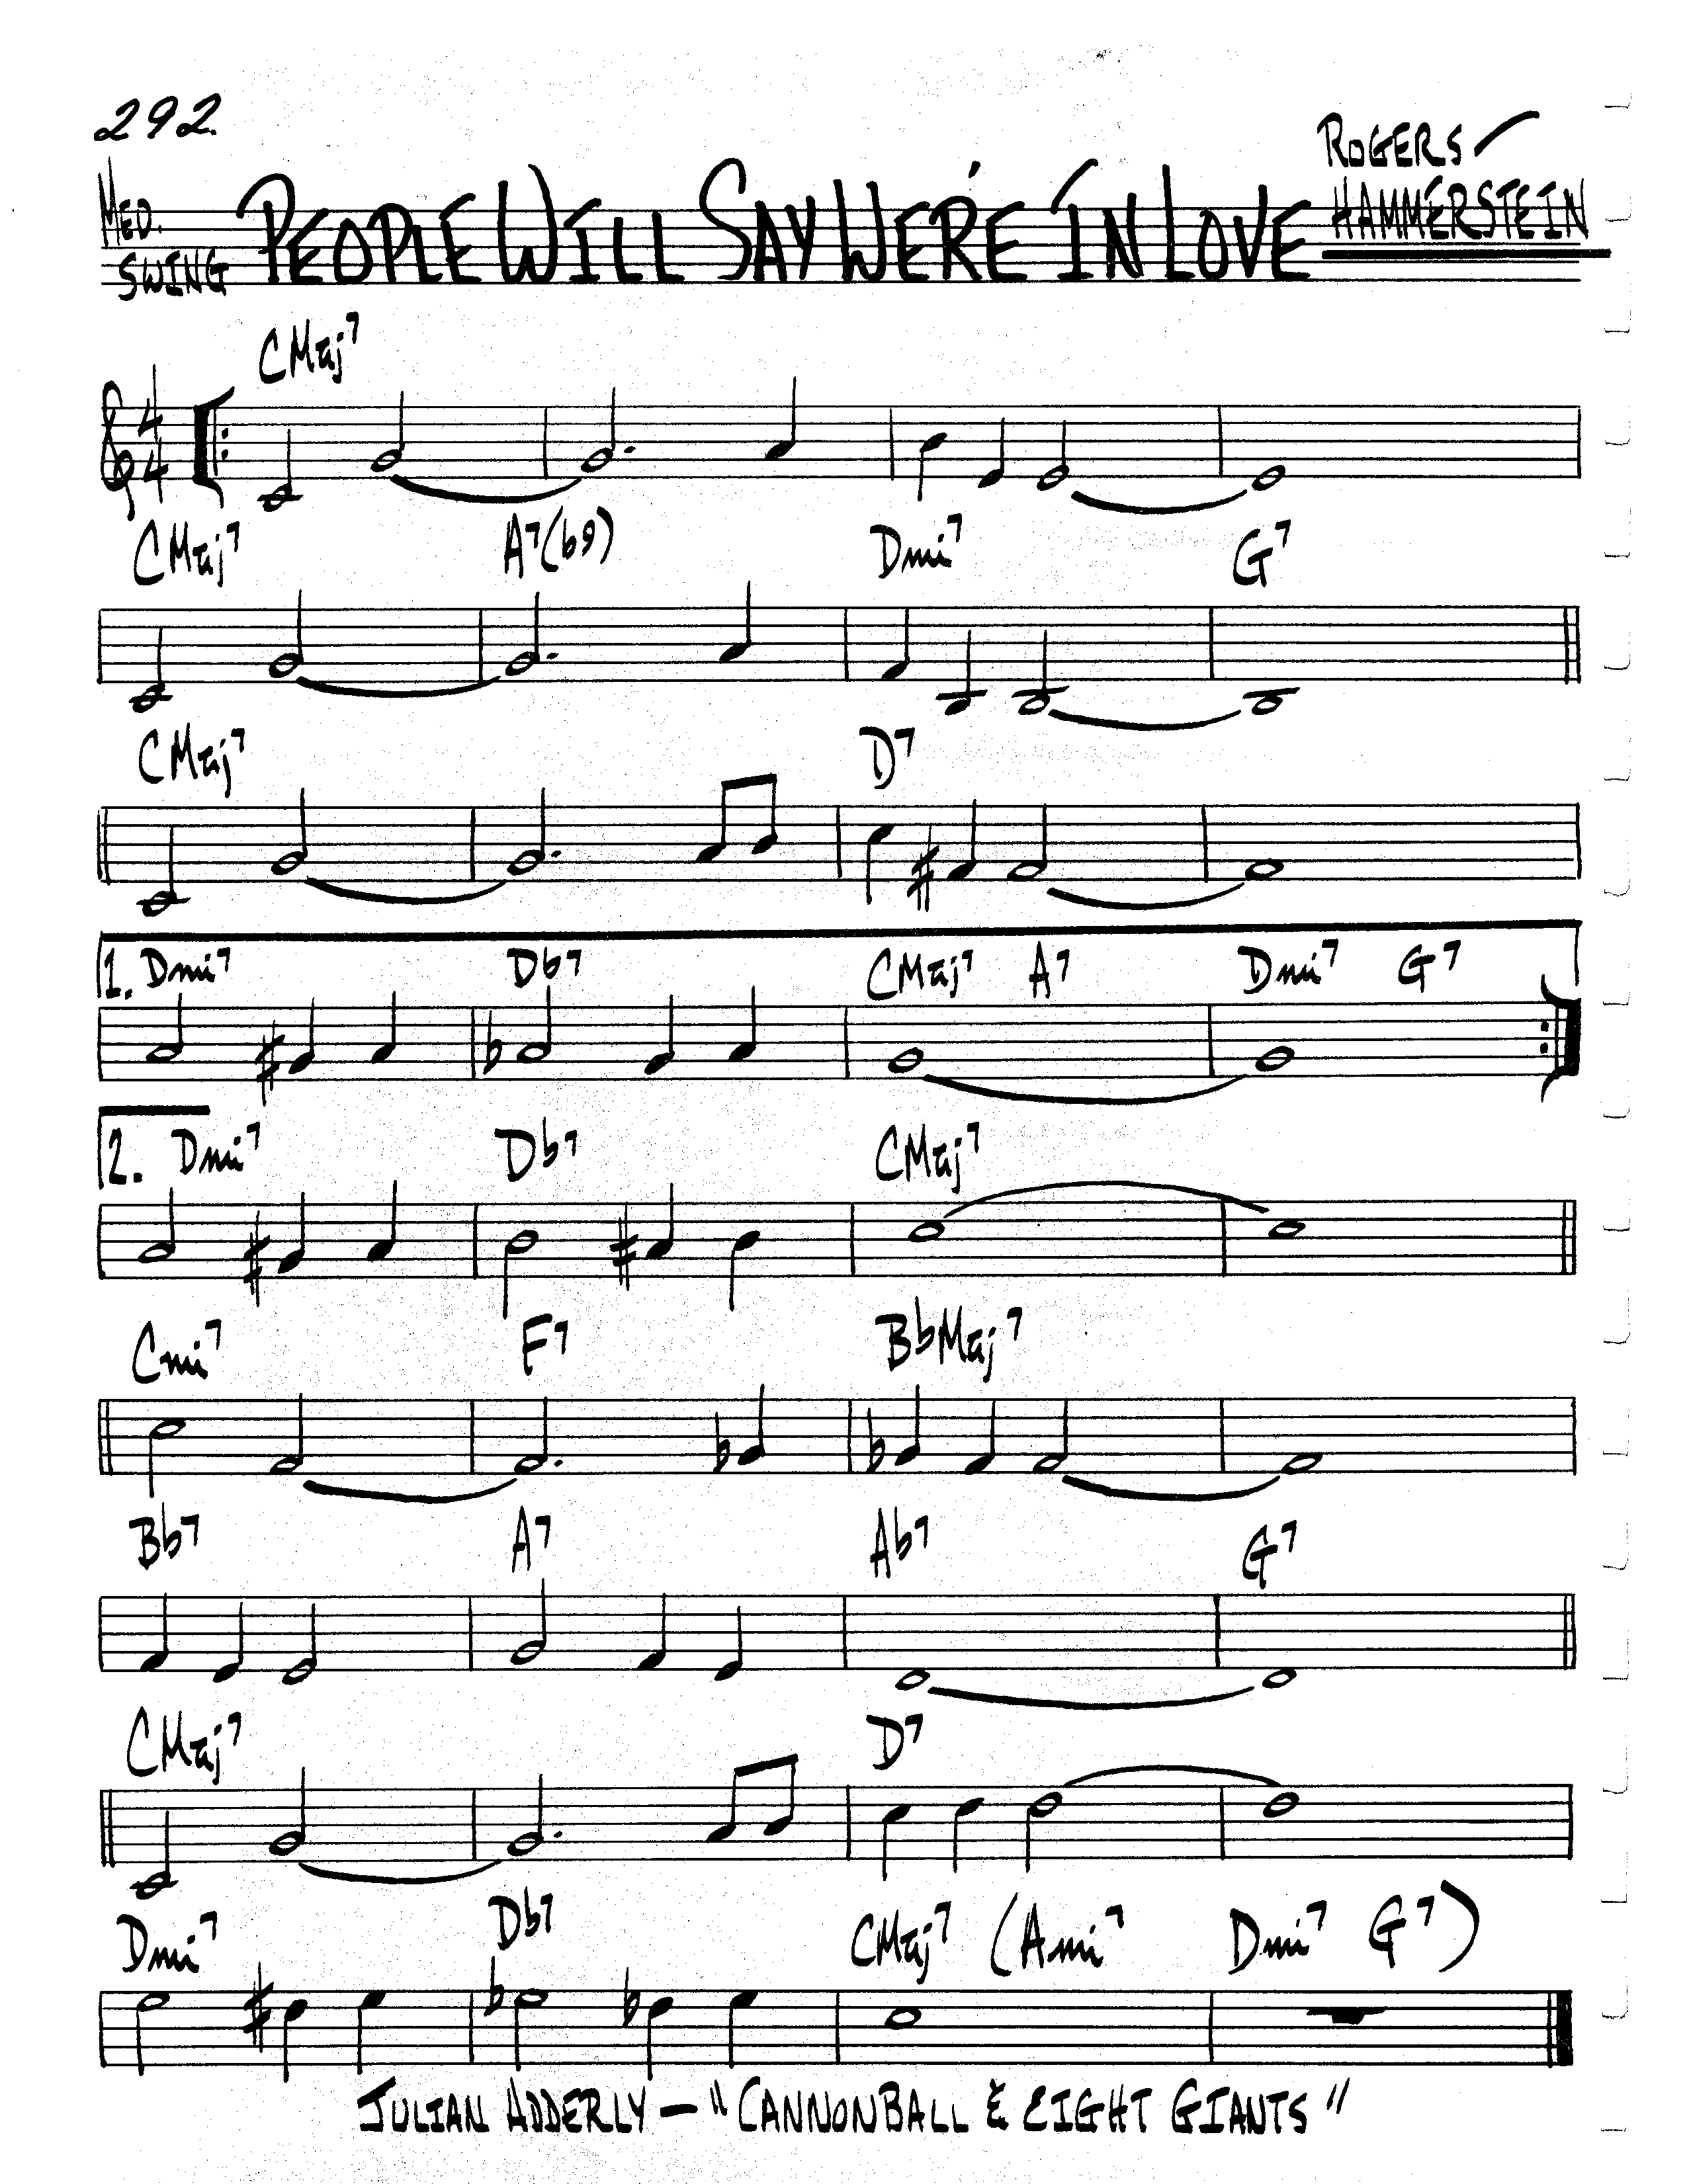 292.
MED.
SWING
PEOPLE WILL SAY WE'RE IN LOVE
ROGERS/
HAMMERSTEIN
4
4
CMaj7
CMaj7 A7(b9) Dmi7 G7
CMaj7 D7
1. Dmi7 Db7 CMaj7 A7 Dmi7 G7
2. Dmi7 Db7 CMaj7
Cmi7 F7 BbMaj7
Bb7 A7 Ab7 G7
CMaj7 D7
Dmi7 Db7 CMaj7 (Ami7 Dmi7 G7)
JULIAN ADDERLY — "CANNONBALL & EIGHT GIANTS"